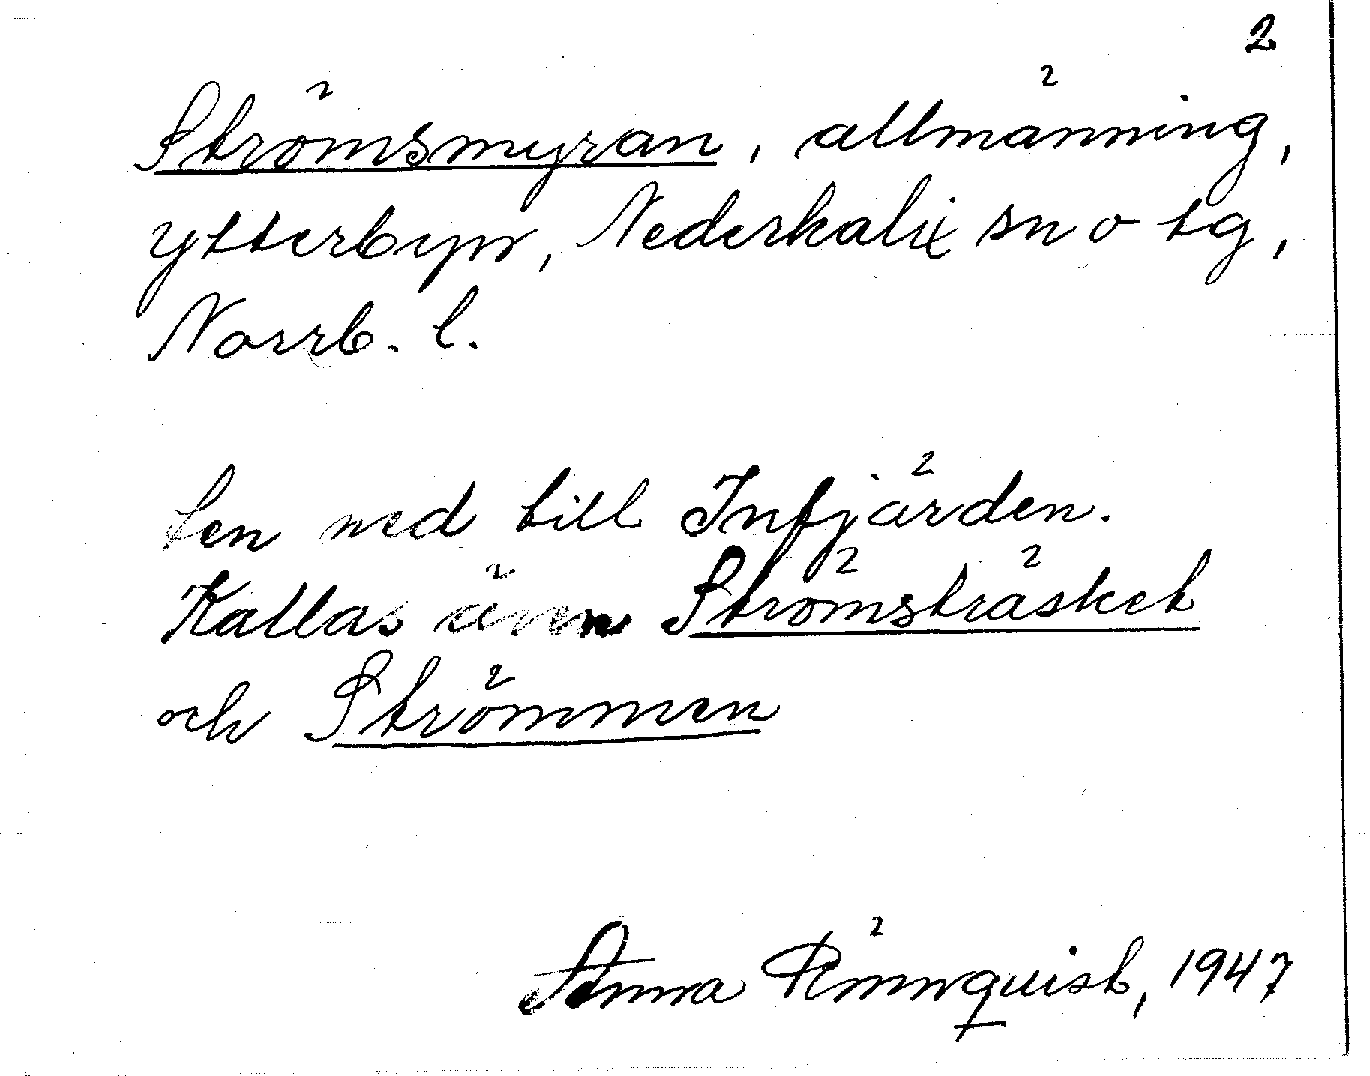 2
Strömsmyran, allmänning,
Ytterbyn, Nederkalix sn o tg,
Norrb. l.
ten ned till Infjärden.
Kallas även Strömsträsket
och Strömmen
Anna Rönnquist, 1947